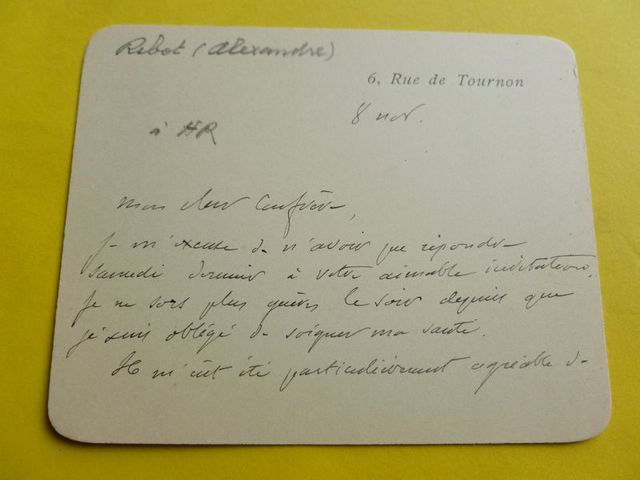 Ribot (Alexandre)
6, Rue de Tournon
8 nov.
à HR
Mon cher Confrère,
Je m'excuse de n'avoir pu répondre
samedi dernier à votre aimable invitation,
Je ne sors plus guère le soir depuis que
je suis obligé de soigner ma santé.
Il m'eût été particulièrement agréable de